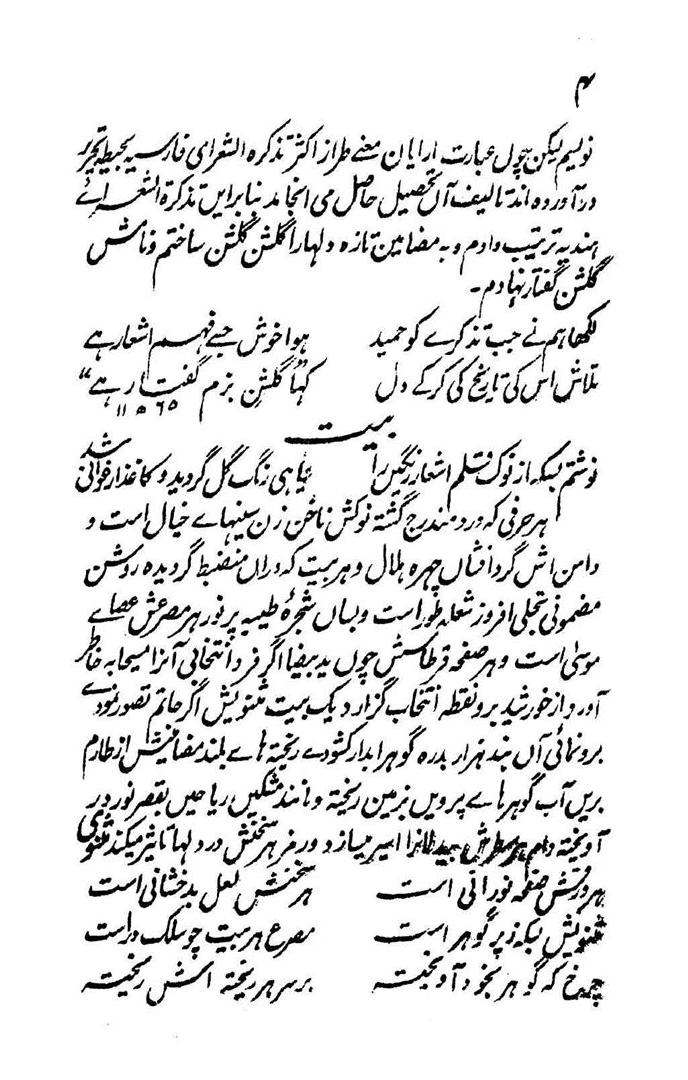 ۴
نویسم لیکن چوں عبارت ارایان معنے طراز اکثر تذکرہ الشعرای فارسیہ بحیطہ تحریر
درآوردہ اند تالیف آں تحصیل حاصل می انجامد بنابرایں تذکرۃ الشعراے
ہندیہ ترتیب دادم و بہ مضامین تازہ دلہارا گلشن گلشن ساختم و نامش
گلشن گفتار نہادم۔
لکھا ہم نے جب تذکرے کو حمید ہوا خوش جسے فہم اشعار ہے
تلاش اس کی تاریخ کی کر کے دل کہا "گلشن بزم گفتار ہے"
۱۱۶۵ھ
بیت
نوشتم بسکہ از نوک قلم اشعار رنگیں را سیاہی رنگ گل گردید و کاغذ ارغوانی شد
ہر حرفی کہ درو مندرج گشتہ نوکش ناخن زن سینہاے خیال است و
دامن اش گرد افشاں چہرہ ہلال و ہر بیت کہ دراں منضبط گردیدہ روشن
مضمونی تجلی افروز شعلہ طور است و بساں شجرۂ طیبہ پر نور ہر مصرعش عصاے
موسیٰ است و ہر صفحہ قرطاسش چوں ید بیضا اگر فرد انتخابی آنرا مسیحا بہ خاطر
آورد از خورشید برو نقطہ انتخاب گزارد یک بیت مثنویش اگر حاتم تصور نمودے
برونمائی آں بند ہزار بدرہ گوہر ابدار کشودے ریختہ ہاے بلند مضامینش از طارم
بریں آب گوہرہاے پرویں بزمین ریختہ و مانند مشکیں ریاحیں بقصر نور در
آویختہ دام اسیر میسازد و رمز ہر سخنش در دلہا تاثیر میکند مثنوی
ہر ورقش صفحہ نورانی است ہر سخنش لعل بدخشانی است
مثنویش بسکہ ز پر گوہر است مصرع ہر بیت چو سلک در است
چرخ کہ گوہر بخود آویختہ بر سر ہر ریختہ اش ریختہ